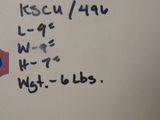 KSCU/496
L-9"
W-9"
H-7"
Wgt.-6 Lbs.